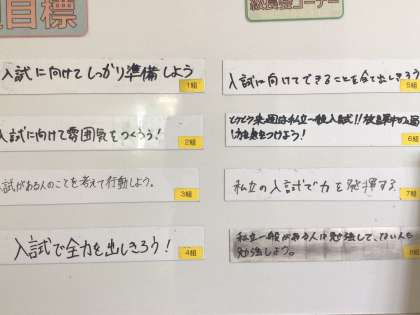 目標
級長会コーナー
入試に向けてしっかり準備しよう
1組
入試に向けて雰囲気をつくろう!
2組
入試がある人のことを考えて行動しよう。
3組
入試で全力を出しきろう!
4組
入試に向けてできることを全て出しきろう
5組
来週は私立一般入試!!
力を身につけよう!
6組
私立の入試で力を発揮する
7組
私立一般がある人は勉強して、ない人も
勉強しよう。
8組